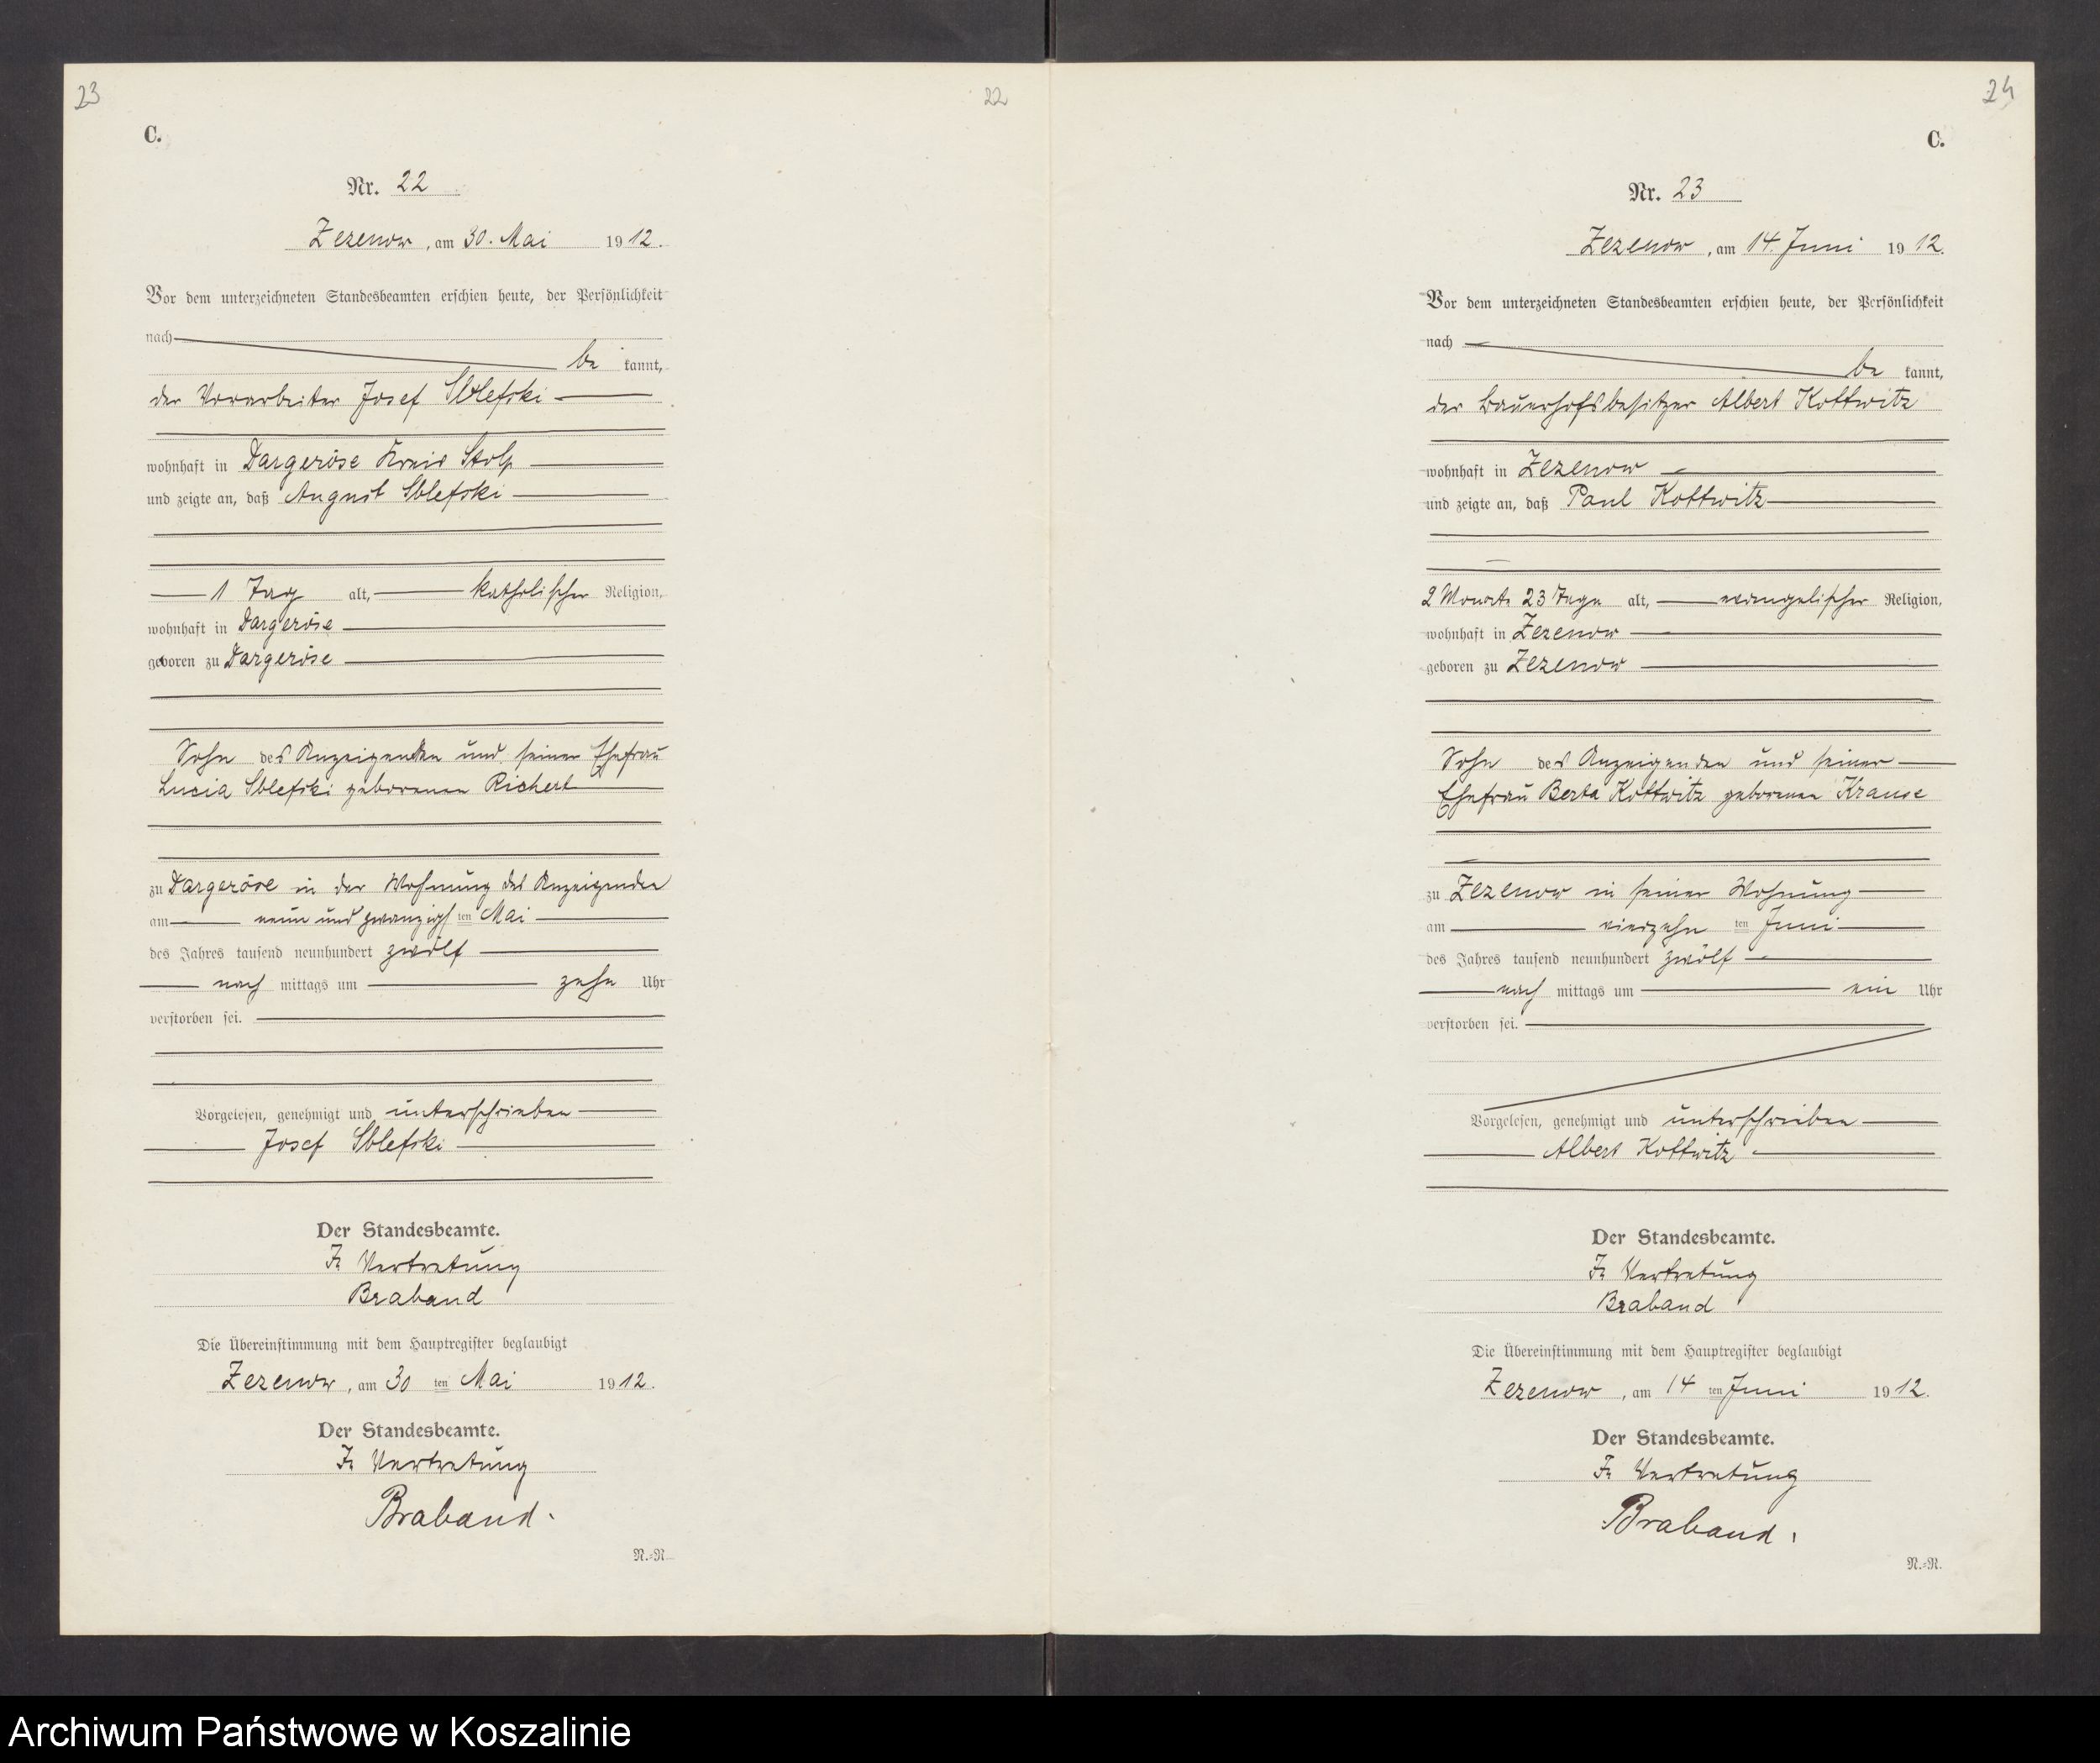 23
22
C.
Nr. 22
Zezenow, am 30. Mai 1912.
Vor dem unterzeichneten Standesbeamten erschien heute, der Persönlichkeit
nach
be kannt,
der Vorarbeiter Josef
wohnhaft in Dargeröse Kreis Stolp
und zeigte an, daß August Sblefski
1 Tag alt, katholischer Religion,
wohnhaft in Dargeröse
geboren zu Dargeröse
Sohn des Anzeigenden und seiner Ehefrau
Lucia Sblefski geborenen Richert
zu Dargeröse in der Wohnung des Anzeigenden
am neun und zwanzigsten Mai
des Jahres tausend neunhundert zwölf
nach mittags um zehn Uhr
verstorben sei.
Vorgelesen, genehmigt und unterschrieben
Josef Sblefski
Der Standesbeamte.
In Vertretung
Braband
Die Übereinstimmung mit dem Hauptregister beglaubigt
Zezenow, am 30 ten Mai 1912.
Der Standesbeamte.
In Vertretung
Braband.
N.=N.
24
C.
Nr. 23
Zezenow, am 14. Juni 1912.
Vor dem unterzeichneten Standesbeamten erschien heute, der Persönlichkeit
nach
be kannt,
der Bauerhofsbesitzer Albert Kottwitz
wohnhaft in Zezenow
und zeigte an, daß Paul Kottwitz
2 Monate 23 Tage alt, evangelischer Religion,
wohnhaft in Zezenow
geboren zu Zezenow
Sohn des Anzeigenden und seiner
Ehefrau Berta Kottwitz geborenen Krause
zu Zezenow in seiner Wohnung
am vierzehn ten Juni
des Jahres tausend neunhundert zwölf
nach mittags um ein Uhr
verstorben sei.
Vorgelesen, genehmigt und unterschrieben
Albert Kottwitz
Der Standesbeamte.
In Vertretung
Braband
Die Übereinstimmung mit dem Hauptregister beglaubigt
Zezenow, am 14 ten Juni 1912.
Der Standesbeamte.
In Vertretung
Braband.
N.=N.
Archiwum Państwowe w Koszalinie